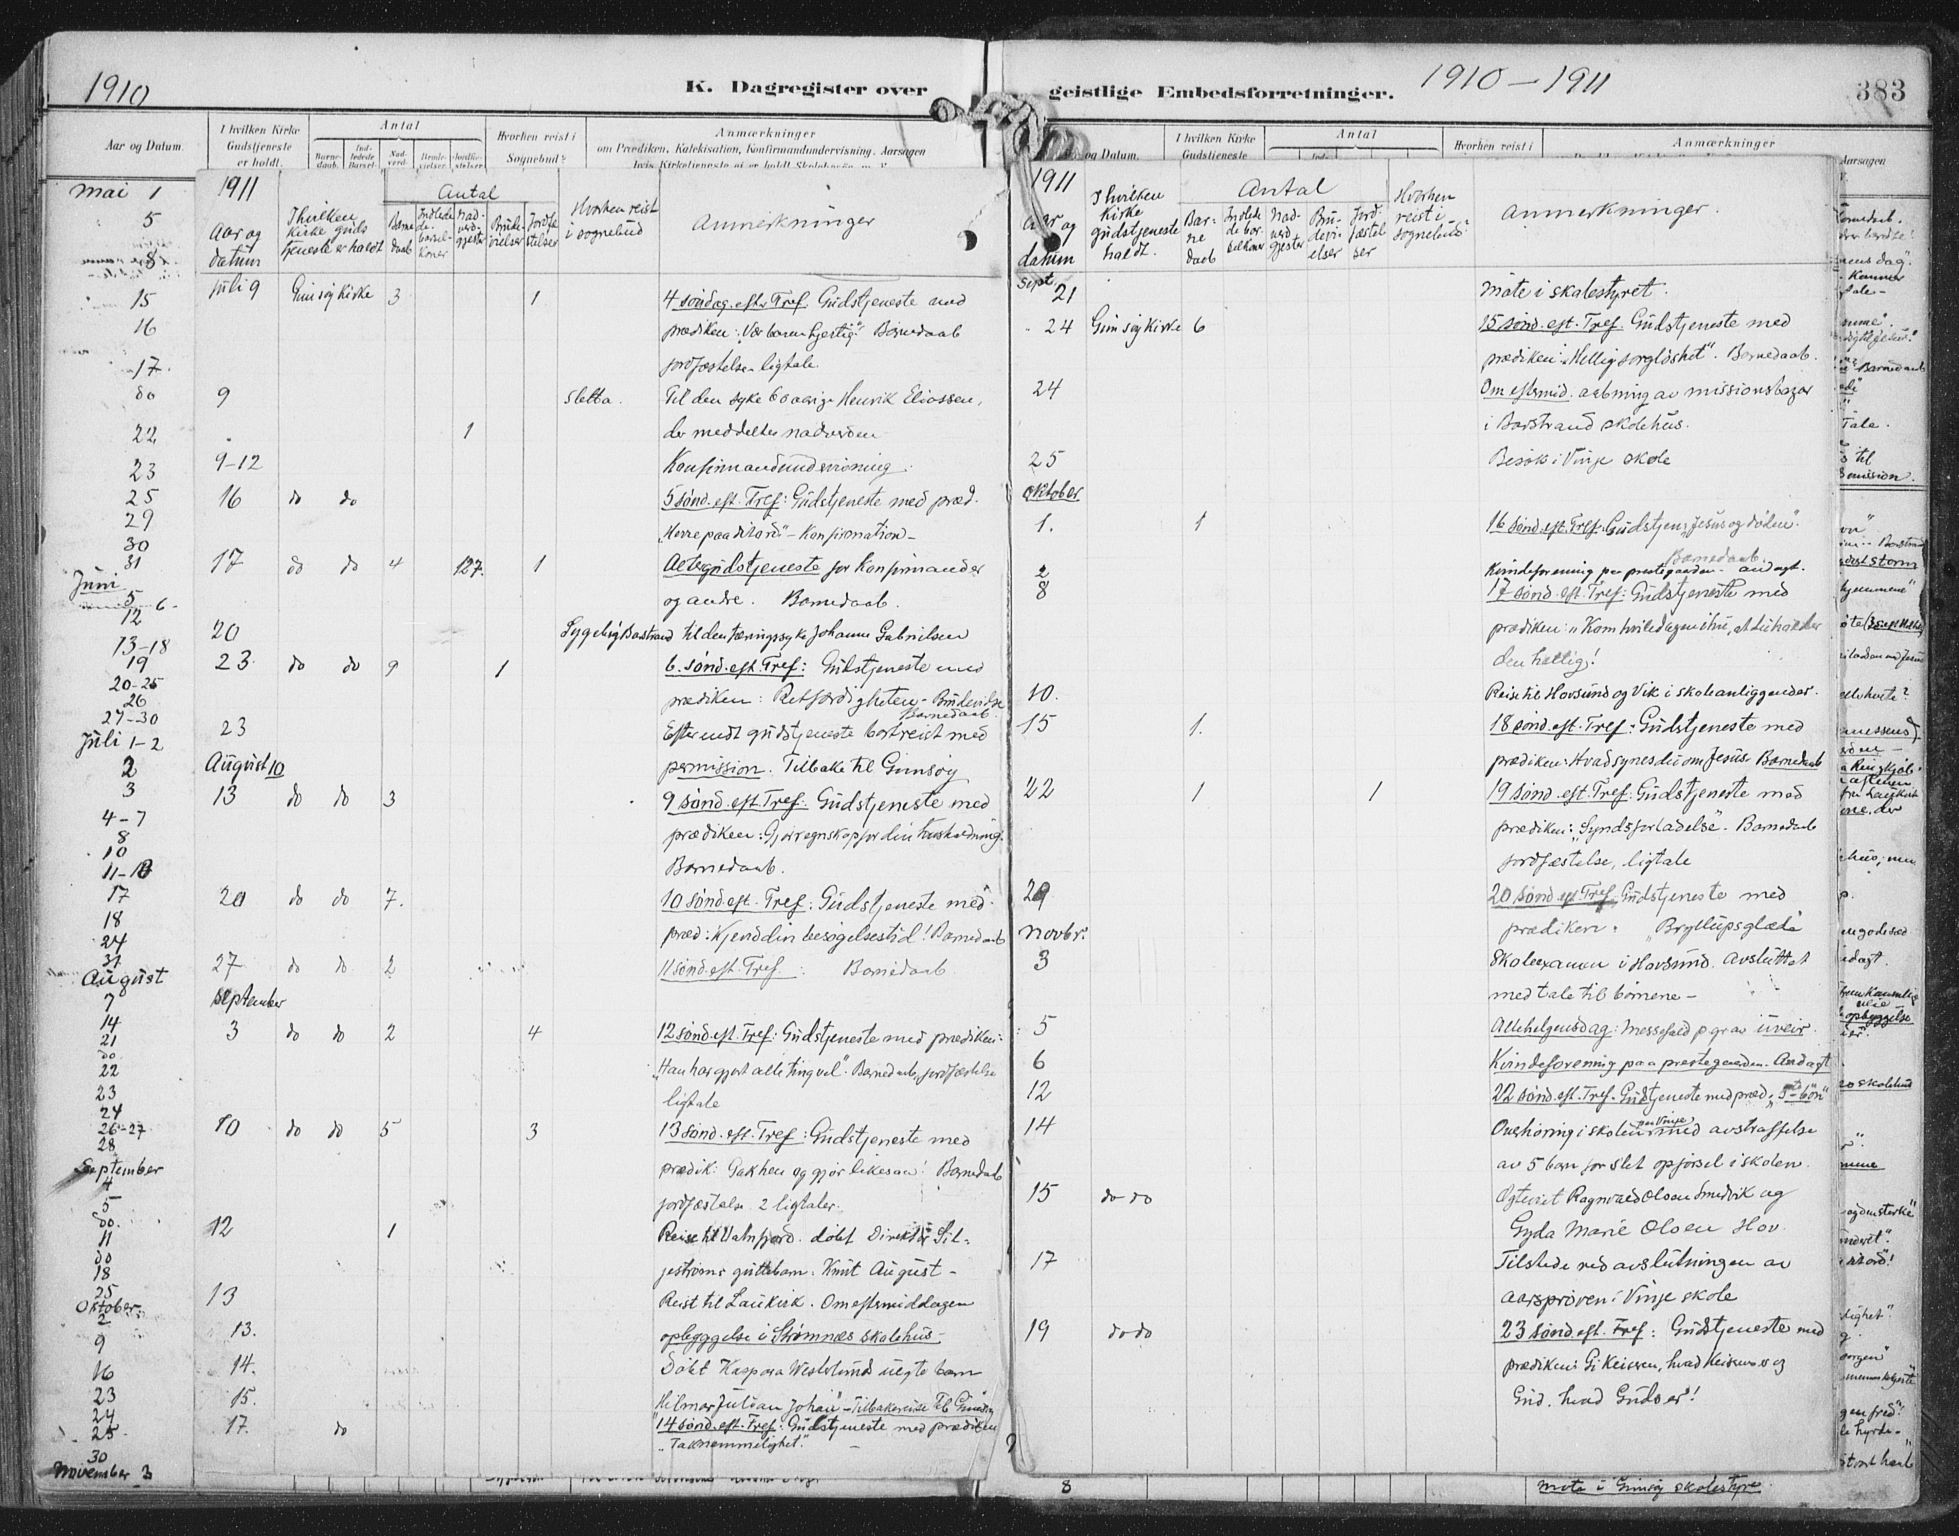 1910
K. Dagregister over
geistlige Embedsforretninger.
1910 – 1911
383
Aar og Datum.
I hvilken Kirke
Gudstjeneste
er holdt.
Antal
Hvorhen reist i
Sognebud?
Anmærkninger
om Prædiken, Katekisation, Konfirmandundervisning, Aarsagen
Mai 1
5
8
15
16
17.
do
22
23
25
29
30
31
Juni
5
6.
12
13-18
19
20-25
26
27-30
Juli 1-2
2
3
4-7
8
10
17
18
24
31
August
7
14
21
do
22
23
24
26-27
28
September
4
5
do.
11
do
18
25
Oktober
2
9
16
23
24
25
30
November 3
1911
Aar og
datum
I hvilken
kirke guds
tjeneste er haldt
Antal
Barne
daab
Indlede
de
barsel-
koner
Nad-
verd-
gjester
Brude-
vielser
Jordfæ
stelser
Hvorhen reist
i sognebud
Anmerkninger
Juli 9 Gimsøy kirke 3 1 4 søndag. efter Tref. Gudstjeneste med
prædiken: "Vær barmhjertig". Barnedaab
jordfæstelse ligtale.
9 Sletta. Til den syke 60 aarige Henrik Eliassen,
1 der meddeltes nadverden
9-12 Konfirmandundervisning.
16 do do 5 sønd. eft. Tref: Gudstjeneste med præd.
"Herre paa dit ord" – Konfirmation –
17 do do 4 127. 1 Altergudstjeneste for Konfirmander
og andre. Barnedaab.
20 til den tæringssyke Johanne Gabrielsen
23 do do 9 1 6. sønd. eft. Tref: Gudstjeneste med
prædiken: Retfærdigheten – Brudevielse
Barnedaab.
23 Efter endt gudstjeneste bortreist med
August 10 permission. Tilbake til Gimsøy
13 do do 3 9 sønd. eft. Tref. Gudstjeneste med
prædiken: Gjør regnskap for din husholdning.
Barnedaab.
20 do do 7. 10 sønd. eft. Tref: Gudstjeneste med
præd: Kjend din besøgelsestid! Barnedaab
27 do do 2 11 sønd. eft. Tref. : Barnedaab
September
3 do do 2 4 12 sønd. eft. Tref: Gudstjeneste med prædiken:
"Han har gjort alle ting vel". Barnedaab, jordfæstelse
ligtale
10 do do 5 3 13 sønd. eft. Tref: Gudstjeneste med
prædik: Gak hen og gjør likesaa! Barnedaab
jordfæstelse 2 ligtaler.
12 1 Reise til Valnfjord. døbt Direktør Sil-
jestrøms guttebarn: Knut August –
13 Reist til Laukvik. Om eftermiddagen
13. opbyggelse i Strømnæs skolehus –
14. Døbt Kaspara Westerlund uegte barn
15. Hilmar Julian Johan – Tilbakereise til Gimsøy
17. do 14 sønd. eft. Tref: Gudstjeneste med prædiken
"Taknemmelighet."
1911
Aar og
datum
I hvilken
kirke
gudstjeneste
haldt.
Antal
Bar-
ne
daab
Nad-
verd
gjester
Bru-
devi-
elser
Jord-
fæstel-
ser
Hvorhen
reist i
sognebud?
Anmerkninger.
Sept.
21 Møte i skolestyret.
24 Gimsøy kirke 6 15 sønd. eft. Tref. Gudstjeneste med
prædiken: "Hellig sorgløshet". Barnedaab.
24 Om eftermid. aabning av missionsbazar
i Barstrand skolehus.
25 Besøk i Vinje skole
Oktober
1. 1 16 sønd. eft. Tref: Gudstjen: "Jesus og døden".
Barnedaab.
2 Kvindeforening paa prestegaarden – andagt.
8 17 sønd. eft. Tref: Gudstjeneste med
prædiken: "Kom hviledagen ihu, at du holder
den hellig!
10. Reise til Hovsund og Vik i skoleanliggender.
15 1. 18 sønd. eft. Tref: Gudstjeneste med
prædiken: Hvad synes du om Jesus. Barnedaab
22 1 1 19 sønd. eft. Tref: Gudstjeneste med
prædiken: "Syndsforladelse". Barnedaab
jordfæstelse, ligtale
29 20 sønd. eft. Tref. Gudstjeneste med
prædiken: "Bryllupsglæde"
Novbr.
3 Skoleexamen i Hovsund. Avsluttet
med tale til børnene –
5 Allehelgensdag: Messefald p. gr. av uveir.
6 Kvindeforening paa prestegaarden. Andagt
12 22 sønd. eft. Tref. Gudstjeneste med præd: "5te bøn"
14 Overhøring i skolen paa Vinje med avstraffelse
av 5 barn for slet opførsel i skolen.
15 do do Egteviet Ragnvald Olsen Smedvik og
Gyda Marie Olsen Hov.
17 Tilstede ved avslutningen av
aarsprøven i Vinje skole
19 do do 23 sønd. eft. Tref: Gudstjeneste med
prædiken: Gi Keiseren, hvad Keiserens er og
Gud, hvad Guds er"!
8 Møte i Gimsøy skolestyre